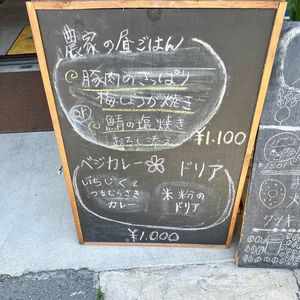 農家の昼ごはん
豚肉のさっぱり
梅しょうが焼き
or
鯖の塩焼き
おろし添え
¥1.100
ベジカレー ドリア
いちじく&
つちむらさき
カレー
米粉の
ドリア
¥1.000